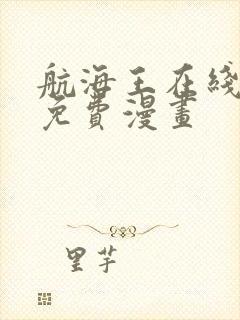 航海王在綫
免費漫畫
里芋